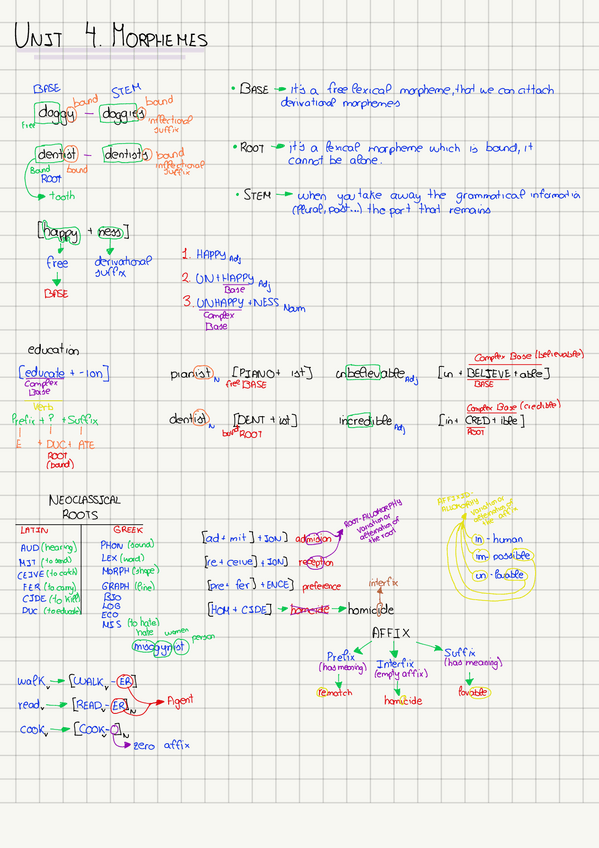 UNIT 4. MORPHEMES
BASE STEM
doggy bound – doggies bound
free inflectional suffix
dentist – dentists bound
Bound bound inflectional suffix
ROOT
tooth
• BASE → it's a free lexical morpheme, that we can attach
derivational morphemes
• ROOT → it's a lexical morpheme which is bound, it
cannot be alone.
• STEM → when you take away the grammatical information
(plural, past...) the part that remains
[happy + ness]
free derivational
suffix
BASE
1. HAPPY Adj
2. UN+HAPPY Adj
Base
3. UNHAPPY +NESS Noun
Complex
Base
education
[educate + -ion]
Complex
Base
Verb
Prefix + ? + Suffix
E + DUC + ATE
ROOT
(bound)
pianist N [PIANO + ist]
free BASE
dentist N [DENT + ist]
bound ROOT
Complex Base (believable)
unbelievable Adj [un + BELIEVE + able]
BASE
Complex Base (credible)
incredible Adj [in + CRED + ible]
ROOT
NEOCLASSICAL
ROOTS
LATIN GREEK
AUD (hearing) PHON (sound)
MIT (to send) LEX (word)
CEIVE (to catch) MORPH (shape)
FER (to carry) GRAPH (line)
CIDE (to kill) BIO
DUC (to educate) LOG
ECO
MIS (to hate)
hate women person
misogynist
[ad + mit] + ION] admision
[re + ceive] + ION] reception
[pre + fer] + ENCE] preference
[HOM + CIDE] → homecide → homicide
interfix
ROOT-ALLOMORPHY
variation or
alternation of
the root
variation or
alternation of
the affix
in - human
im - possible
un - lovable
AFFIX
Prefix Interfix Suffix
(has meaning) (empty affix) (has meaning)
rematch homicide lovable
walk v → [WALK v - ER]
read v → [READ v - ER] N → Agent
cook v → [COOK v - O] N
zero affix